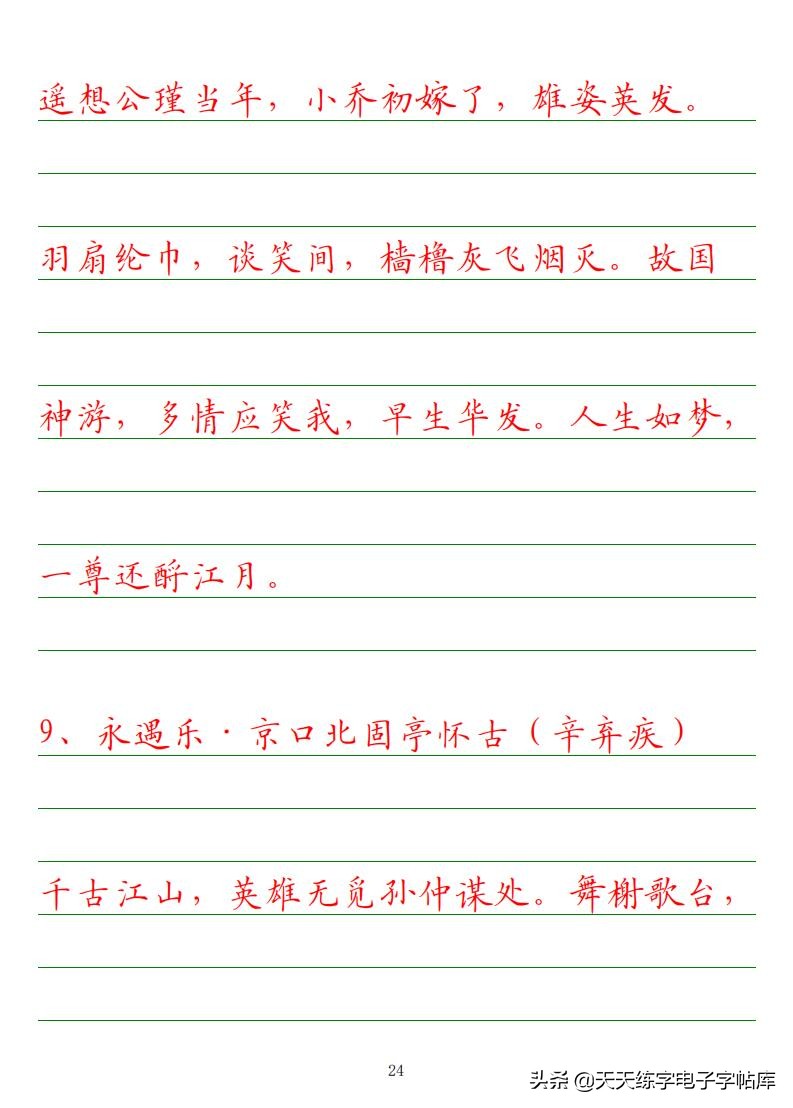 遥想公瑾当年，小乔初嫁了，雄姿英发。
羽扇纶巾，谈笑间，樯橹灰飞烟灭。故国
神游，多情应笑我，早生华发。人生如梦，
一尊还酹江月。
9、永遇乐·京口北固亭怀古（辛弃疾）
千古江山，英雄无觅孙仲谋处。舞榭歌台，
24
头条 @天天练字电子字帖库